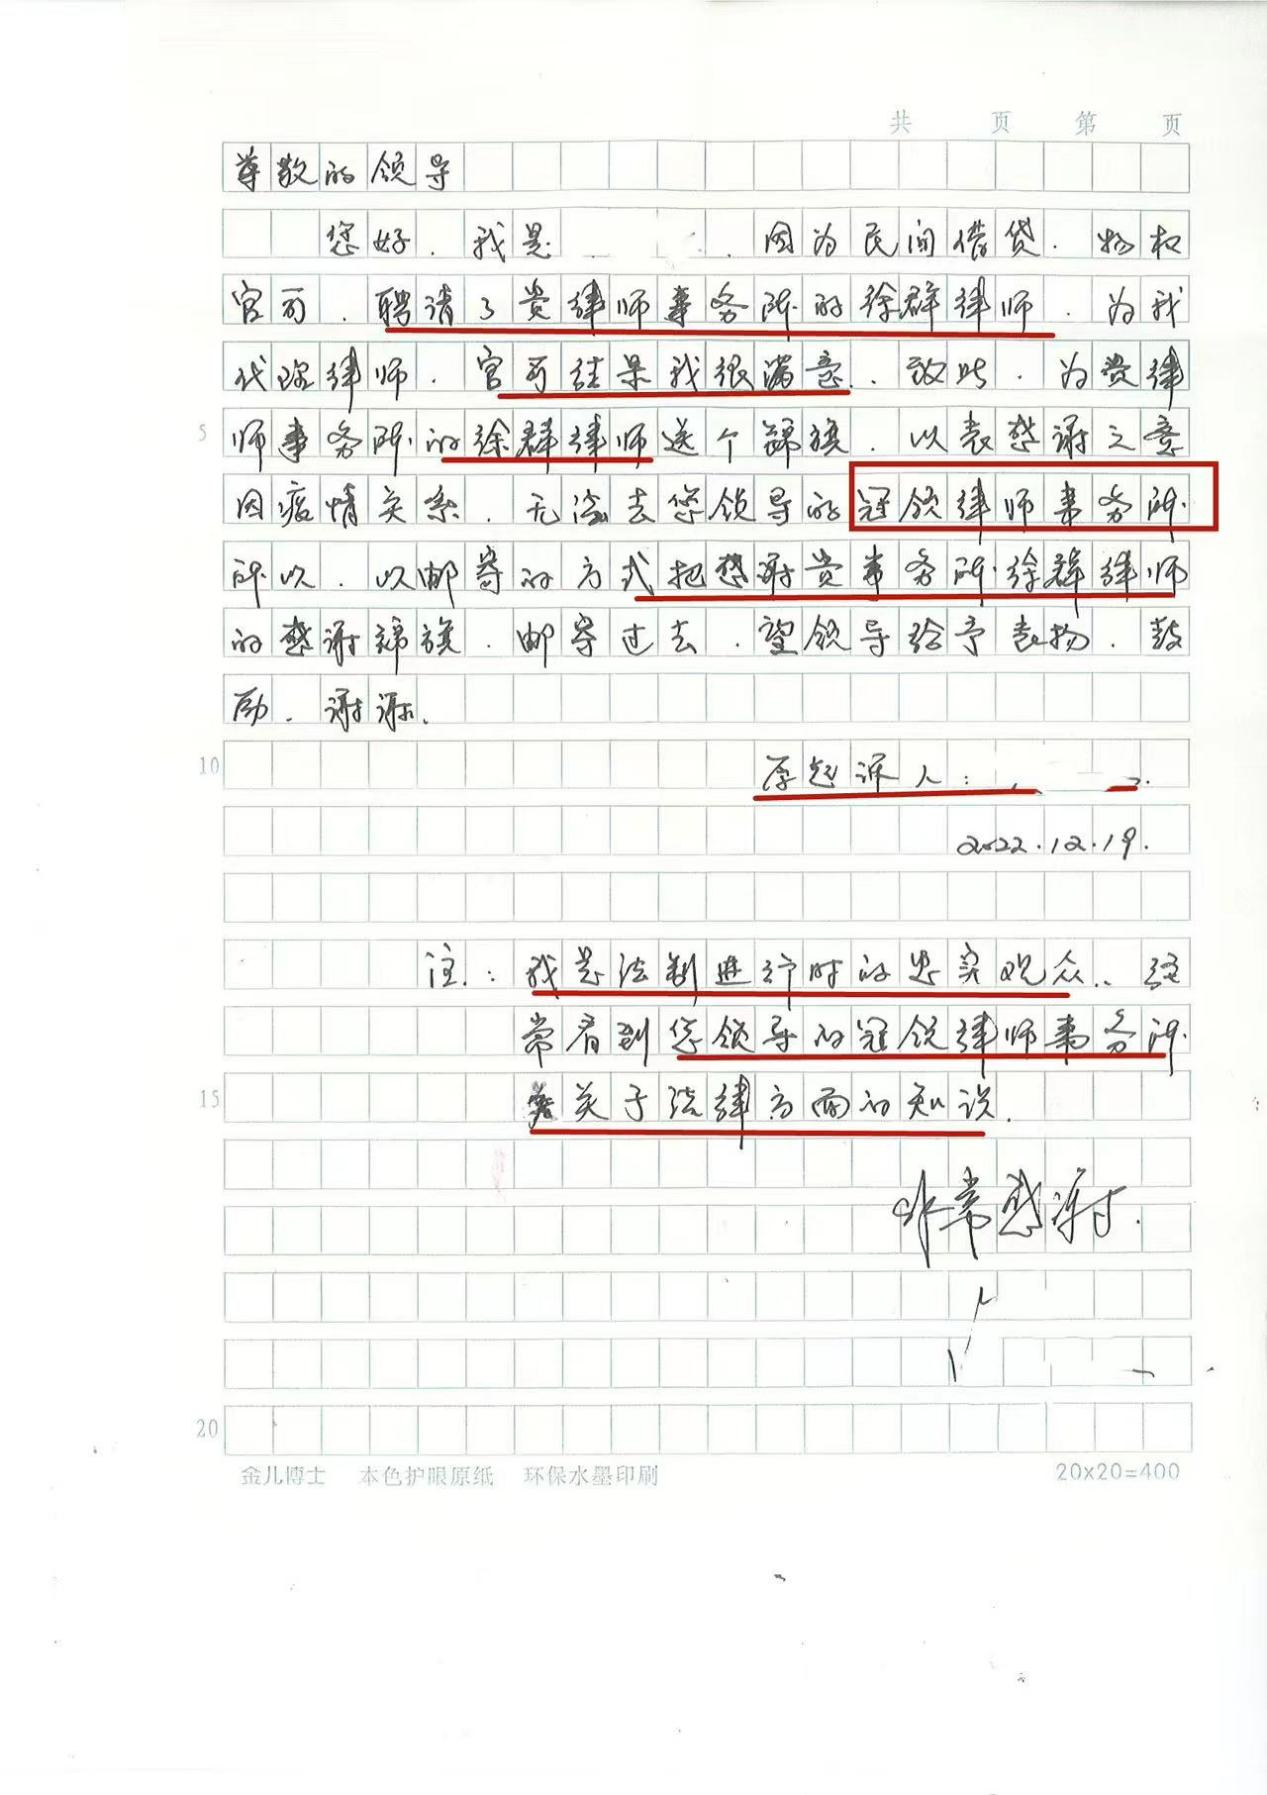 共 页 第 页
尊敬的领导
您好.我是 . 因为民间借贷.物权
官司.聘请了贵律师事务所的徐群律师.为我
代理律师.官司结果我很满意.致此.为贵律
5 师事务所的徐群律师送个锦旗.以表感谢之意
因疫情关系.无法去您领导的冠领律师事务所
所以.以邮寄的方式把感谢贵事务所徐群律师
的感谢锦旗.邮寄过去.望领导给予表扬.鼓
励.谢谢.
10 原起诉人:
2022.12.19.
注.:我是法制进行时的忠实观众.经
常看到您领导的冠领律师事务所
15 关于法律方面的知识.
非常感谢.
20
金儿博士 本色护眼原纸 环保水墨印刷 20x20=400